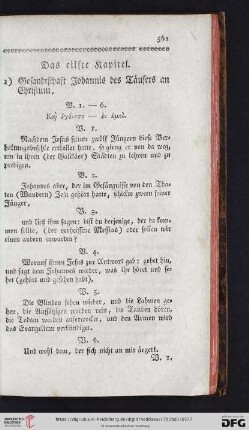 361
Das eilfte Kapitel.
1) Gesandtschaft Johannis des Täufers an
Christum,
V. 1. — 6.
Και εγενετο — εν εμοι.
V. 1.
Nachdem Jesus seinen zwölf Jüngern diese Ver-
haltungsbefehle ertheilet hatte, so gieng er von da weg,
um in ihren (der Galiläer) Städten zu lehren und zu
predigen.
V. 2.
Johannes aber, der im Gefängnisse von den Tha-
ten (Wundern) Jesu gehört hatte, schickte zween seiner
Jünger,
V. 3.
und ließ ihm sagen: bist du derjenige, der da kom-
men sollte, (der verheissene Messias) oder sollen wir
einen andern erwarten?
V. 4.
Worauf ihnen Jesus zur Antwort gab: gehet hin,
und sagt dem Johannes wieder, was ihr höret und se-
het (gehört und gesehen habt).
V. 5.
Die Blinden sehen wieder, und die Lahmen ge-
hen, die Aussätzigen werden rein, die Tauben hören,
die Todten werden auferwecket, und den Armen wird
das Evangelium verkündiget.
V. 6.
Und wohl dem, der sich nicht an mir ärgert.
V. 1,